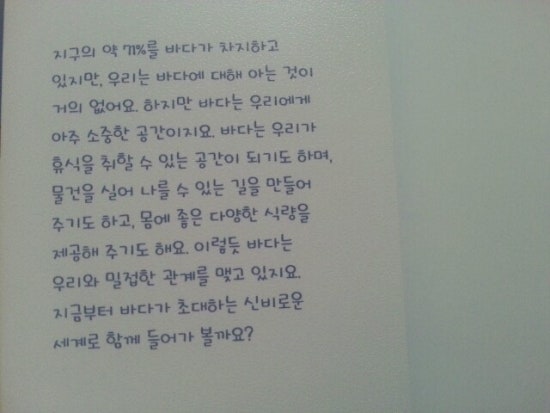 지구의 약 71%를 바다가 차지하고
있지만, 우리는 바다에 대해 아는 것이
거의 없어요. 하지만 바다는 우리에게
아주 소중한 공간이지요. 바다는 우리가
휴식을 취할 수 있는 공간이 되기도 하며,
물건을 실어 나를 수 있는 길을 만들어
주기도 하고, 몸에 좋은 다양한 식량을
제공해 주기도 해요. 이렇듯 바다는
우리와 밀접한 관계를 맺고 있지요.
지금부터 바다가 초대하는 신비로운
세계로 함께 들어가 볼까요?